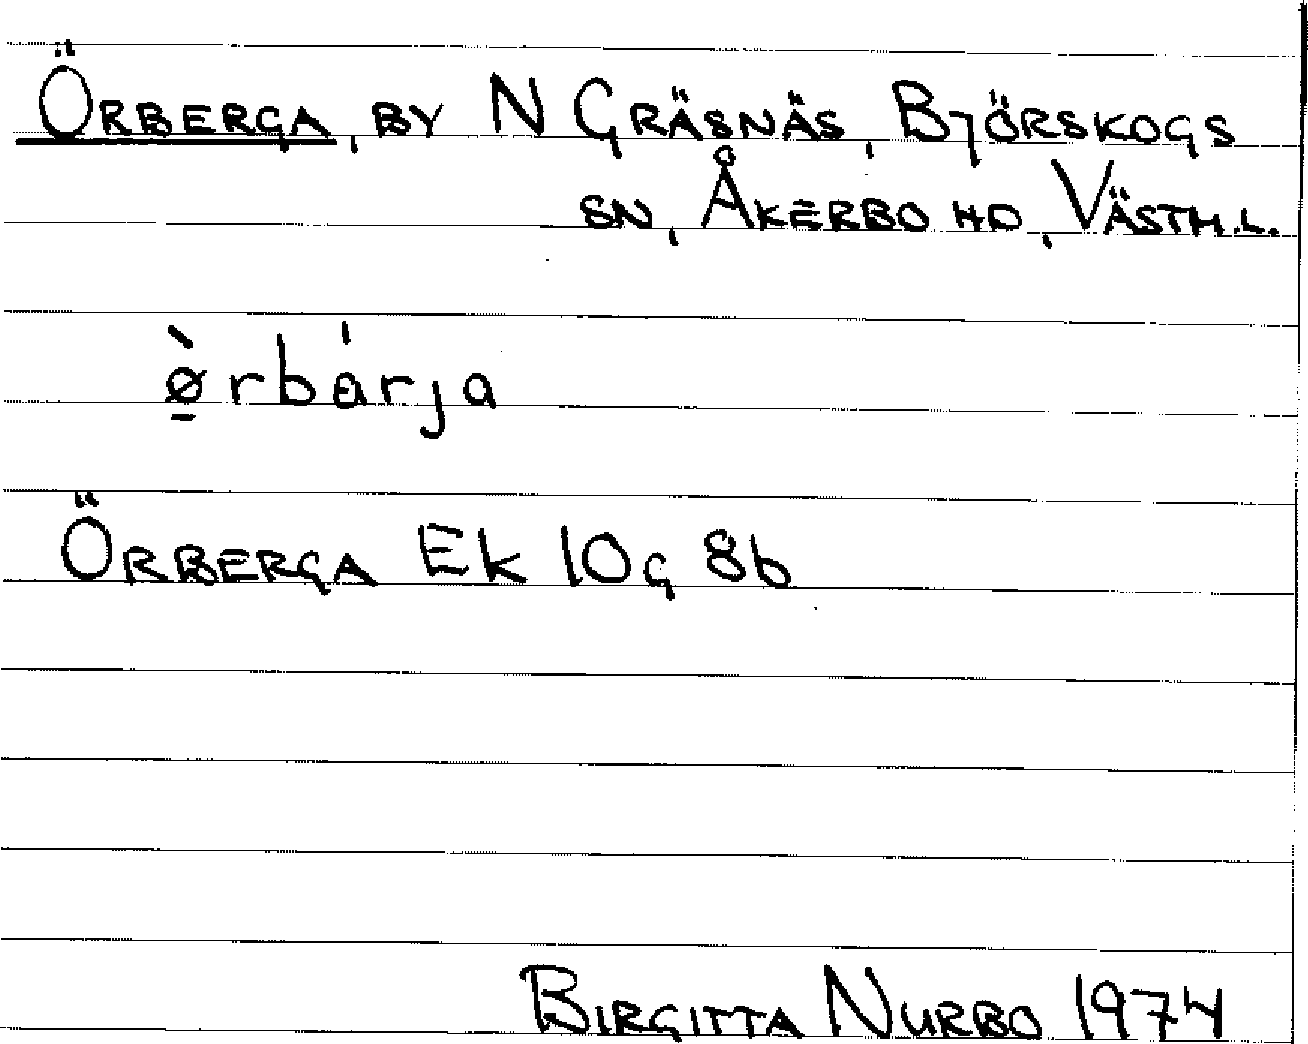 Örberga, by N Gräsnäs, Björskogs
sn, Åkerbo hd, Västm.l.
ø̱̀rbárja
Örberga Ek 10g 8b
Birgitta Nurbo 1974